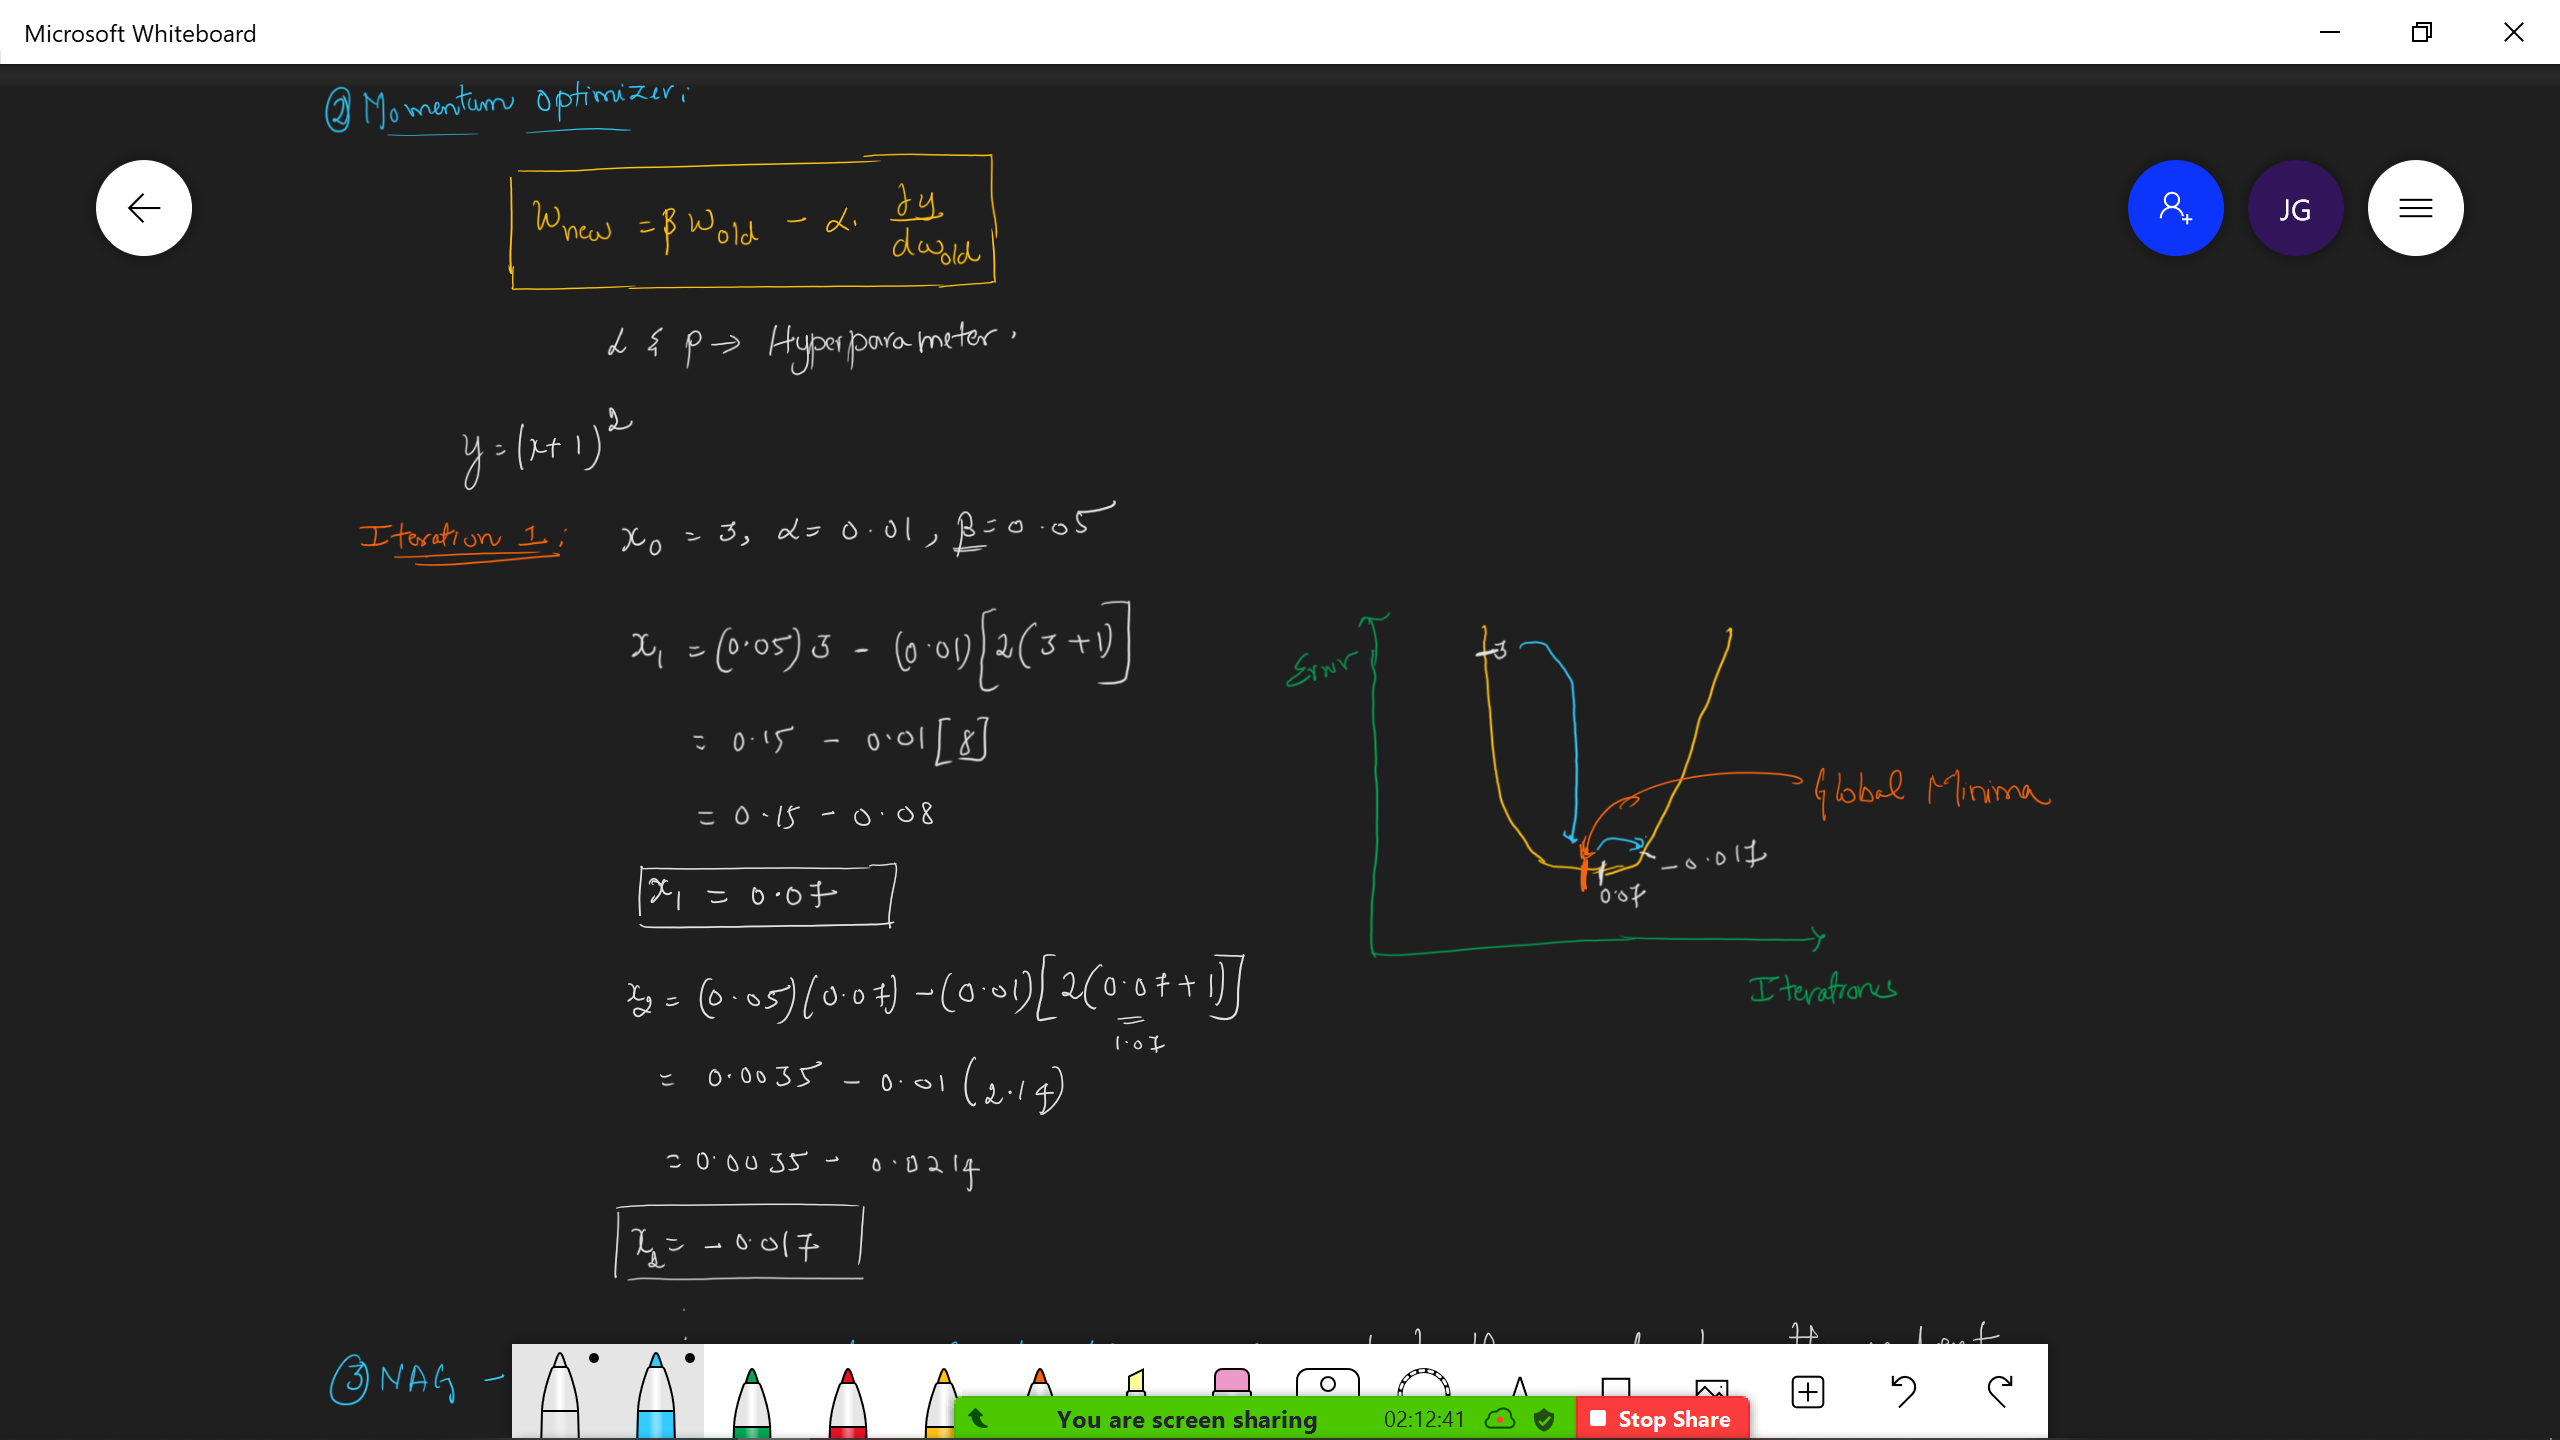 Microsoft Whiteboard
② Momentum optimizer:
W_new = β W_old - α. ∂y/dw_old
JG
α & β → Hyperparameter.
y = (x+1)^2
Iteration 1: x_0 = 3, α = 0.01, β = 0.05
x_1 = (0.05) 3 - (0.01)[2(3+1)]
= 0.15 - 0.01[8]
= 0.15 - 0.08
x_1 = 0.07
x_2 = (0.05)(0.07) - (0.01)[2(0.07+1)]
1.07
= 0.0035 - 0.01(2.14)
= 0.0035 - 0.0214
x_2 = - 0.017
Error
3
Global Minima
-0.017
0.07
Iterations
③ NAG -
You are screen sharing
02:12:41
Stop Share